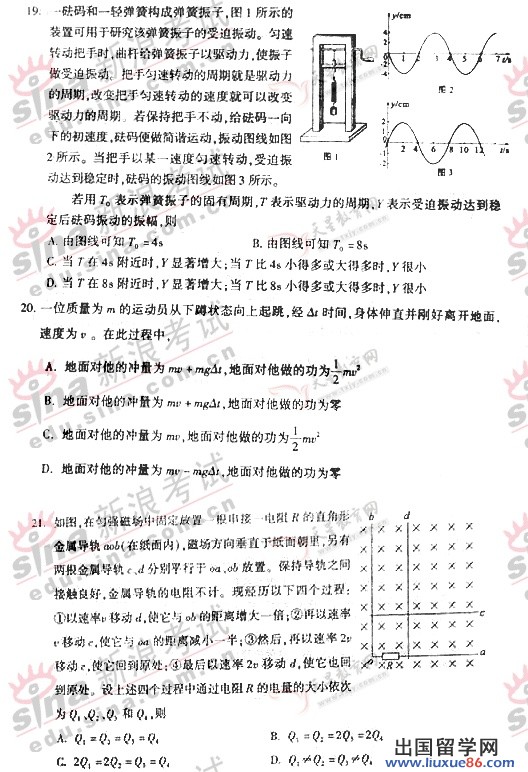 19. 一砝码和一轻弹簧构成弹簧振子,图1所示的
装置可用于研究该弹簧振子的受迫振动。匀速
转动把手时,曲杆给弹簧振子以驱动力,使振子
做受迫振动。把手匀速转动的周期就是驱动力
的周期,改变把手匀速转动的速度就可以改变
驱动力的周期。若保持把手不动,给砝码一向
下的初速度,砝码便做简谐运动,振动图线如图
2所示。当把手以某一速度匀速转动,受迫振
动达到稳定时,砝码的振动图线如图3所示。
图1
y/cm
4
2
0
-2
-4
1 2 3 4 5 6 7 t/s
图2
y/cm
2
-2
2 4 6 8 10 12 t/s
图3
若用T₀表示弹簧振子的固有周期,T表示驱动力的周期,Y表示受迫振动达到稳
定后砝码振动的振幅,则
A. 由图线可知T₀=4s
B. 由图线可知T₀=8s
C. 当T在4s附近时,Y显著增大;当T比4s小得多或大得多时,Y很小
D. 当T在8s附近时,Y显著增大;当T比8s小得多或大得多时,Y很小
20. 一位质量为m的运动员从下蹲状态向上起跳,经Δt时间,身体伸直并刚好离开地面,
速度为v。在此过程中,
A. 地面对他的冲量为mv+mgΔt,地面对他做的功为½mv²
B. 地面对他的冲量为mv+mgΔt,地面对他做的功为零
C. 地面对他的冲量为mv,地面对他做的功为½mv²
D. 地面对他的冲量为mv-mgΔt,地面对他做的功为零
21. 如图,在匀强磁场中固定放置一根串接一电阻R的直角形
金属导轨aob(在纸面内),磁场方向垂直于纸面朝里,另有
两根金属导轨c、d分别平行于oa、ob放置。保持导轨之间
接触良好,金属导轨的电阻不计。现经历以下四个过程:
①以速率v移动d,使它与ob的距离增大一倍;②再以速率
v移动c,使它与oa的距离减小一半;③然后,再以速率2v
移动c,使它回到原处;④最后以速率2v移动d,使它也回
到原处。设上述四个过程中通过电阻R的电量的大小依次
为Q₁、Q₂、Q₃和Q₄,则
b d
c
a
o R
A. Q₁=Q₂=Q₃=Q₄
B. Q₁=Q₂=2Q₃=2Q₄
C. 2Q₁=2Q₂=Q₃=Q₄
D. Q₁≠Q₂=Q₃≠Q₄
sina 新浪考试
edu.sina.com.cn
天星教育网
出国留学网
www.liuxue86.com